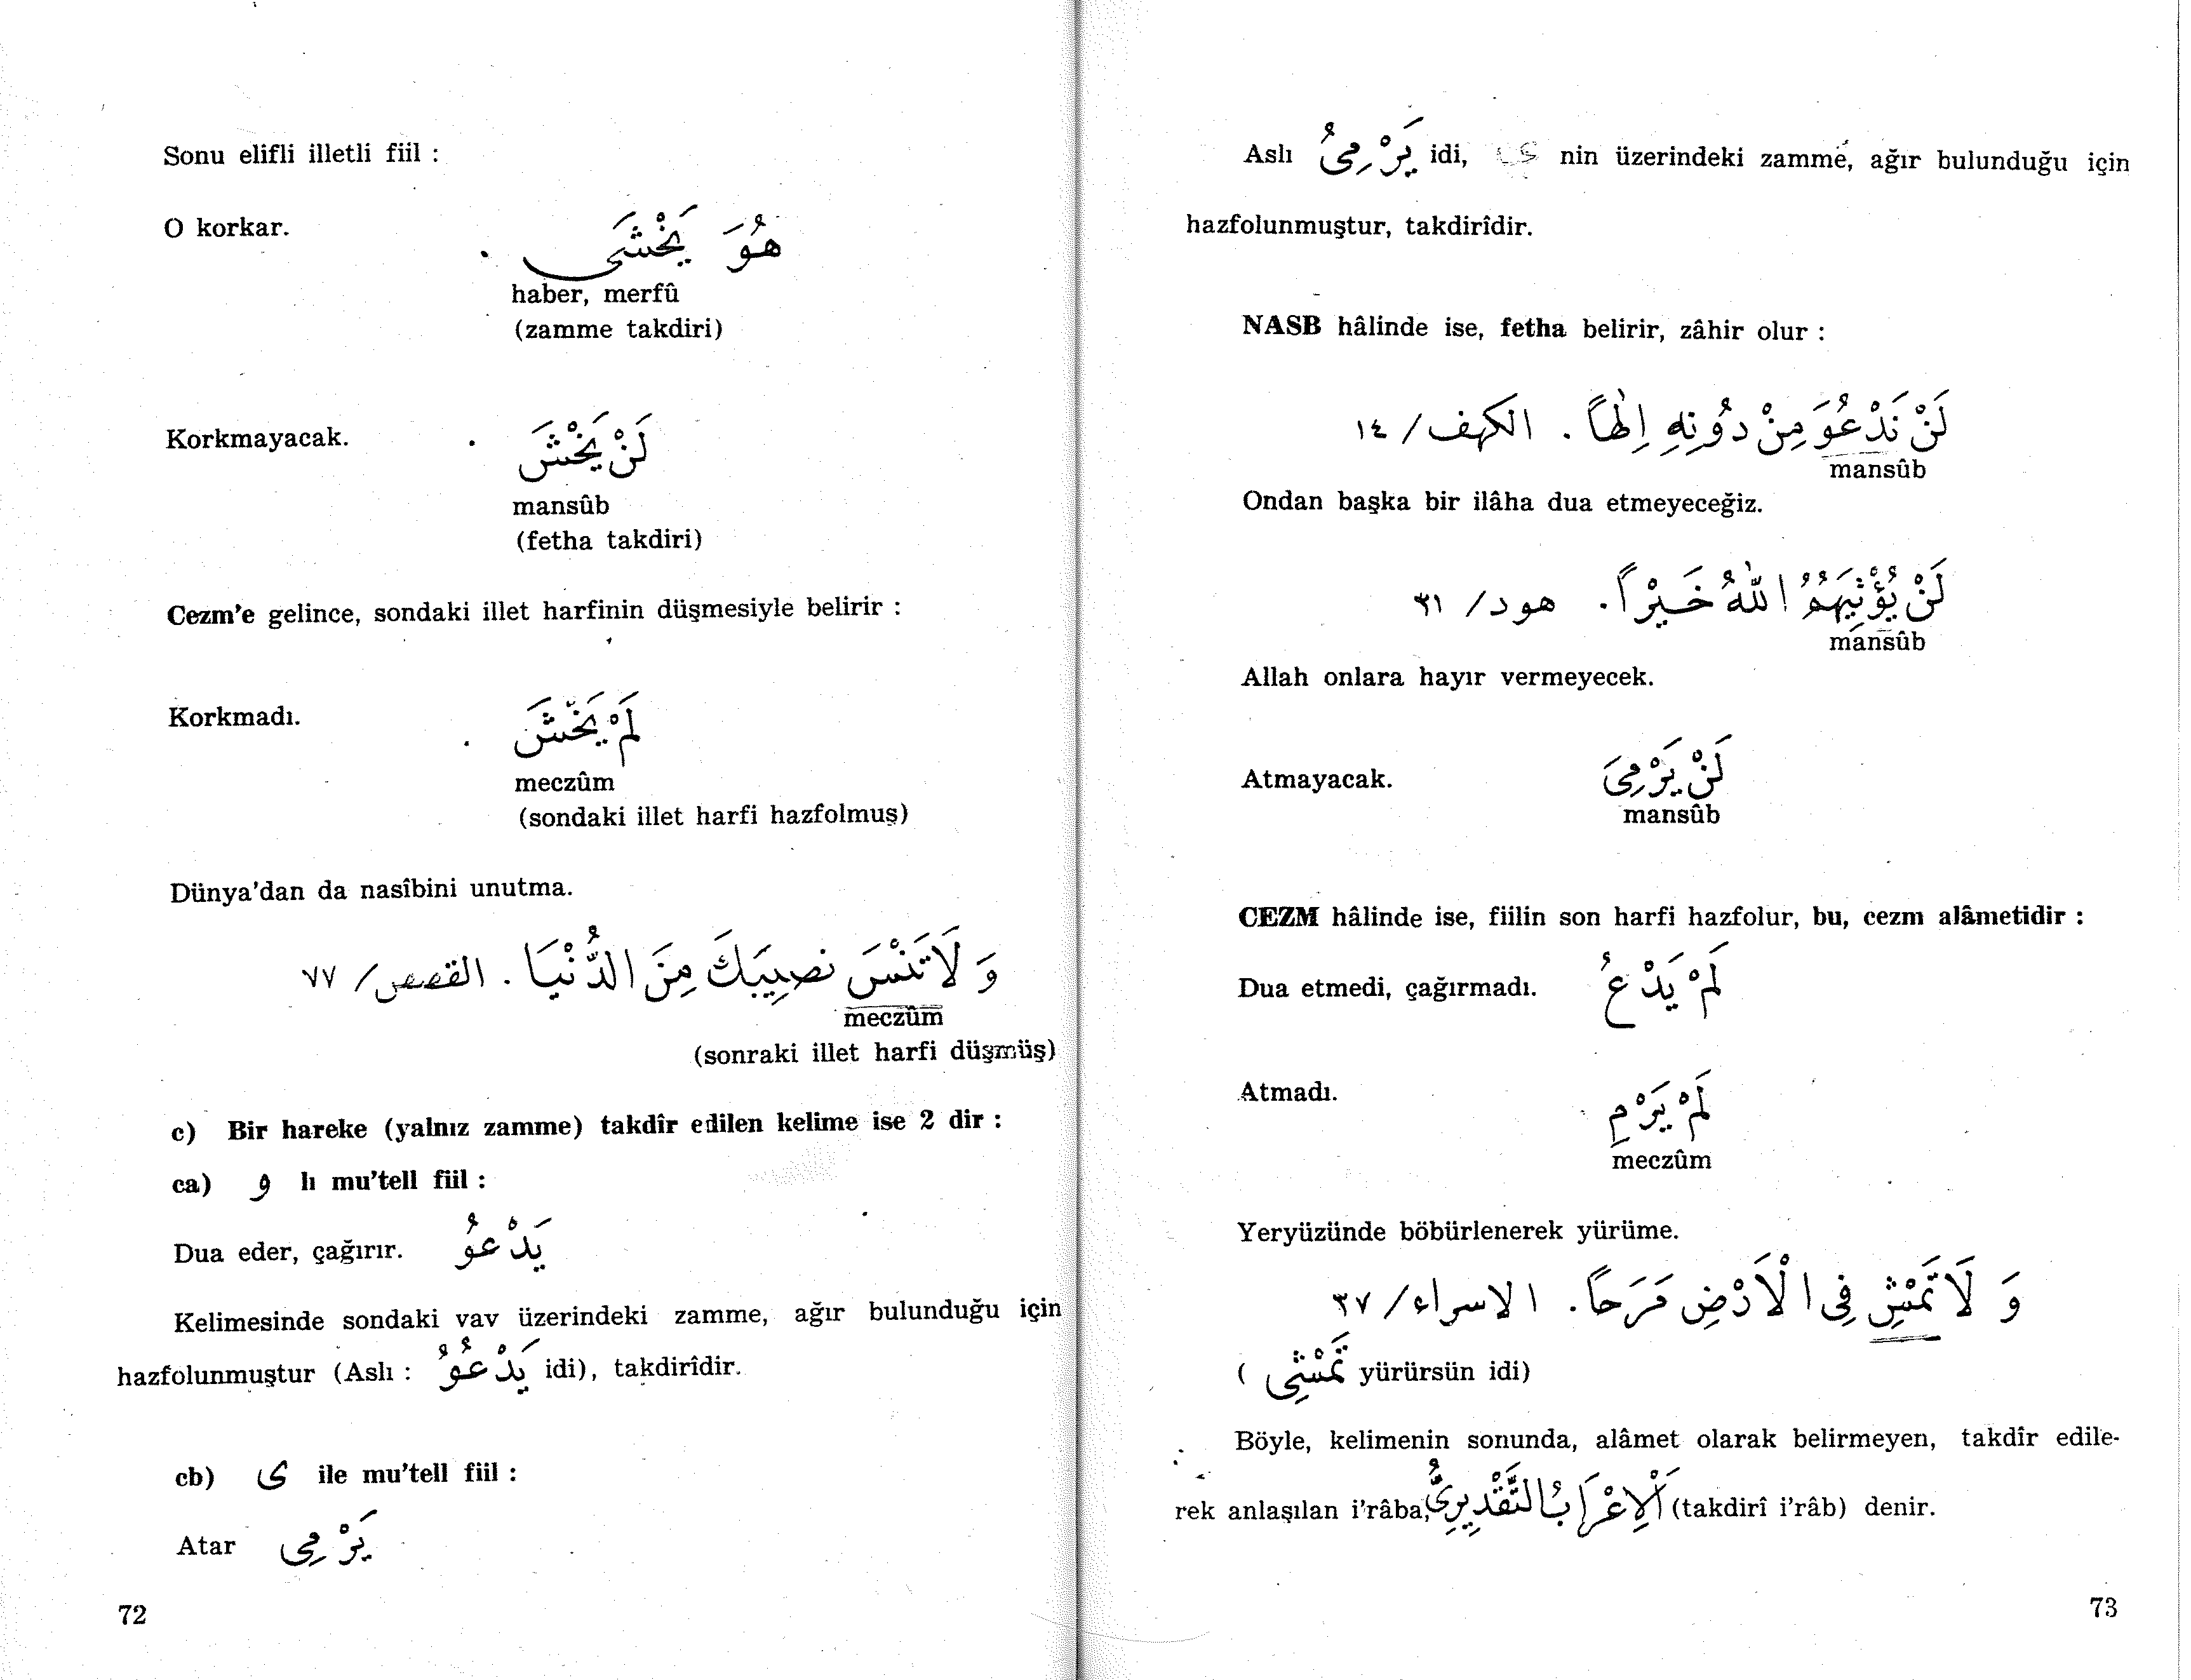 Sonu elifli illetli fiil :
O korkar. هُوَ يَخْشَى .
haber, merfû
(zamme takdiri)
Korkmayacak. لَنْ يَخْشَ .
mansûb
(fetha takdiri)
Cezm'e gelince, sondaki illet harfinin düşmesiyle belirir :
Korkmadı. لَمْ يَخْشَ .
meczûm
(sondaki illet harfi hazfolmuş)
Dünya'dan da nasîbini unutma.
وَ لَا تَنْسَ نَصِيبَكَ مِنَ الدُّنْيَا . القصص / ٧٧
meczûm
(sonraki illet harfi düşmüş)
c) Bir hareke (yalnız zamme) takdîr edilen kelime ise 2 dir :
ca) و lı mu'tell fiil :
Dua eder, çağırır. يَدْعُو
Kelimesinde sondaki vav üzerindeki zamme, ağır bulunduğu için
hazfolunmuştur (Aslı : يَدْعُوُ idi), takdirîdir.
cb) ى ile mu'tell fiil :
Atar يَرْمِى
72
Aslı يَرْمِىُ idi, ى nin üzerindeki zamme, ağır bulunduğu için
hazfolunmuştur, takdirîdir.
NASB hâlinde ise, fetha belirir, zâhir olur :
لَنْ نَدْعُوَ مِنْ دُونِهِ اِلٰهاً . الكهف / ١٤
mansûb
Ondan başka bir ilâha dua etmeyeceğiz.
لَنْ يُؤْتِيَهُمُ اللّٰهُ خَيْراً . هود / ٣١
mansûb
Allah onlara hayır vermeyecek.
Atmayacak. لَنْ يَرْمِىَ
mansûb
CEZM hâlinde ise, fiilin son harfi hazfolur, bu, cezm alâmetidir :
Dua etmedi, çağırmadı. لَمْ يَدْعُ
Atmadı. لَمْ يَرْمِ
meczûm
Yeryüzünde böbürlenerek yürüme.
وَ لَا تَمْشِ فِى الْاَرْضِ مَرَحاً . الاسراء / ٣٧
( تَمْشِى yürürsün idi)
Böyle, kelimenin sonunda, alâmet olarak belirmeyen, takdîr edile-
rek anlaşılan i'râba, اَلْاِعْرَابُ التَّقْدِيرِىُّ (takdirî i'râb) denir.
73